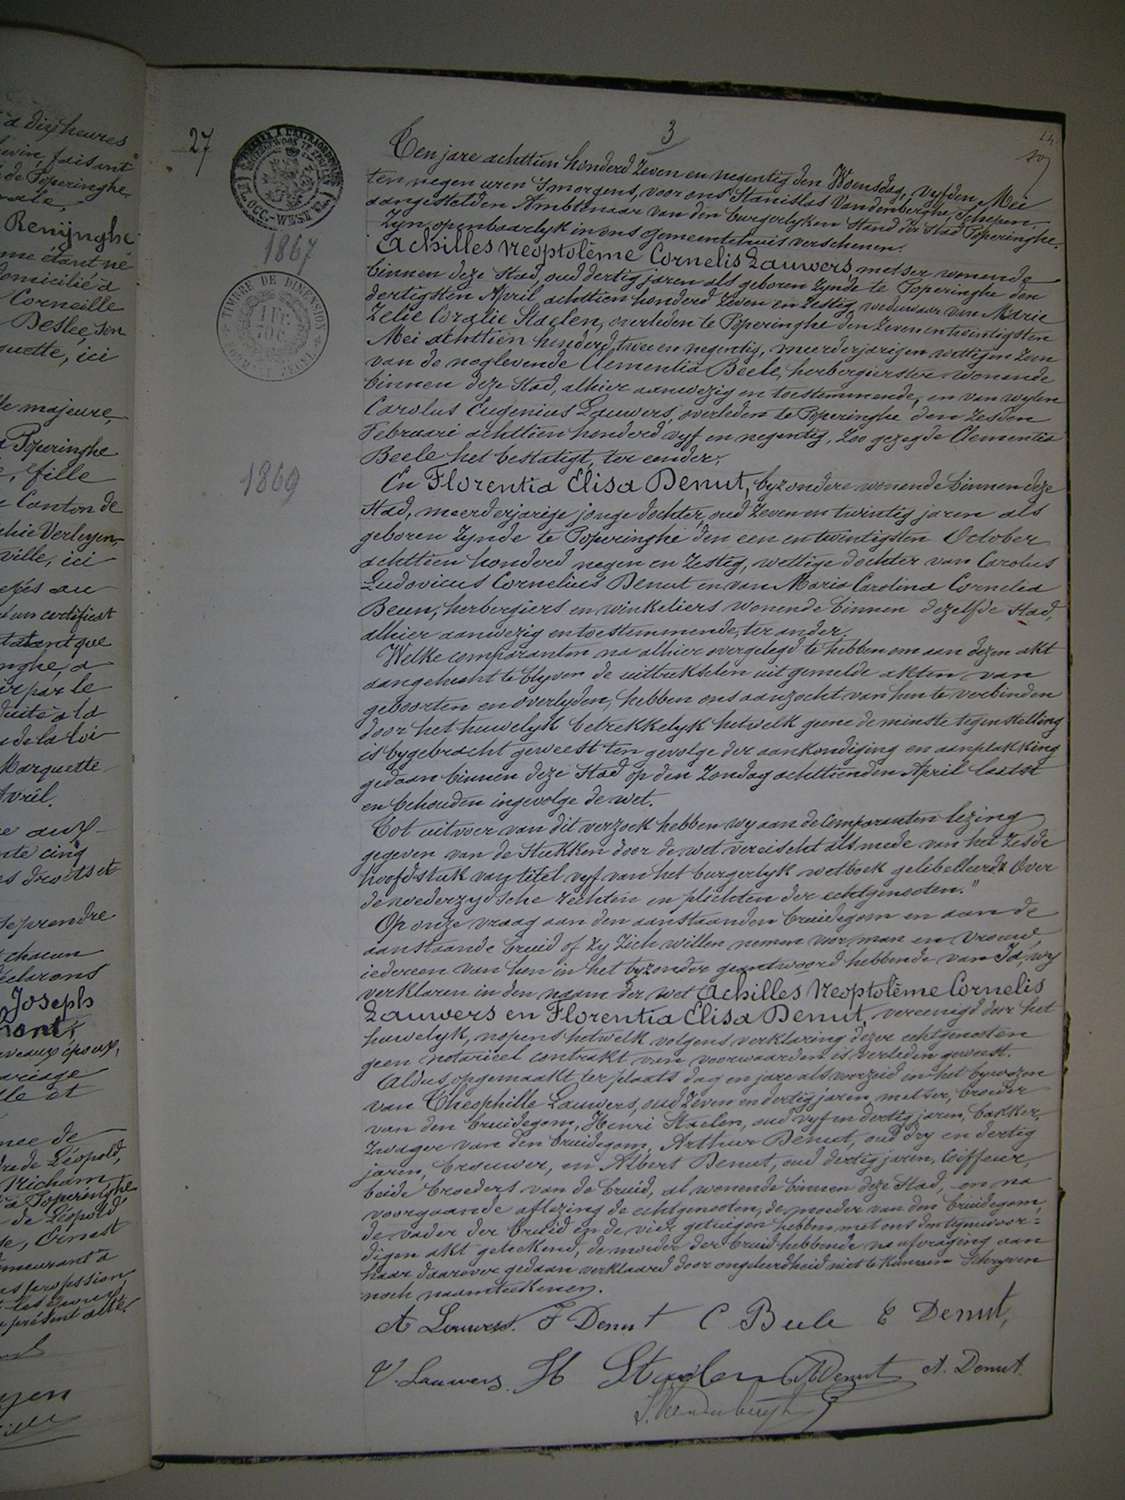 a dix heures
faisant
de Poperinghe
Renynghe
domicilié à
Corneille
Deslee, son
ici
majeure,
à Poperinghe
fille
Canton de
ville, ici
au
certificat
que
par le
de la loi
Marquette
Avril.
cinq
prendre
chacun
déclarons
Joseph
époux,
mariage
et
de
de Léopold,
à Poperinghe
de Léopold
Ernest
demeurant à
profession
présent acte
27
3
1867
TIMBRE DE DIMENSION
1869
Ten jare achttien honderd zeven en negentig den Woensdag, vyfden Mei
ten negen uren 's morgens, voor ons Stanislas Vandenberghe, Schepen,
aangestelden Ambtenaar van den burgerlyken Stand der Stad Poperinghe,
zyn openbaarlyk in ons gemeentehuis verschenen.
Achilles Néoptolême Cornelis Lauwers, metser wonende
binnen deze Stad, oud dertig jaren als geboren zynde te Poperinghe den
dertigsten April achttien honderd zeven en zestig, weduwaar van Marie
Zelie Coralie Staelen, overleden te Poperinghe den zeven en twintigsten
Mei achttien honderd twee en negentig, meerderjarigen wettigen zoon
van de nog levende Clementia Beele, herbergierster wonende
binnen deze Stad, alhier aanwezig en toestemmende, en van wylen
Carolus Eugenius Lauwers, overleden te Poperinghe den zesden
Februari achttien honderd vyf en negentig, zoo gezegde Clementia
Beele het bestatigt, ter eender;
En Florentia Elisa Denut, byzondere wonende binnen deze
Stad, meerderjarige jonge dochter, oud zeven en twintig jaren als
geboren zynde te Poperinghe den een en twintigsten October
achttien honderd negen en zestig, wettige dochter van Carolus
Ludovicus Cornelius Denut en van Maria Carolina Cornelia
Beun, herbergiers en winkeliers wonende binnen dezelfde Stad,
alhier aanwezig en toestemmende, ter ander.
Welke comparanten na alhier overgelegd te hebben om aan dezen akt
aangehecht te blyven de uittrekselen uit gemelde akten van
geboorten en overlyden, hebben ons aanzocht van hun te verbinden
door het huwelyk betrekkelyk hetwelk geene de minste tegenstelling
is bygebracht geweest ten gevolge der aankondiging en aanplakking
gedaan binnen deze Stad op den Zondag achttienden April laatst
en behouden ingevolge de wet.
Tot uitvoer van dit verzoek hebben wy aan de Comparanten lezing
gegeven van de Stukken door de wet vereischt alsmede van het zesde
hoofdstuk van titel vyf van het burgerlyk wetboek gelibelleerd: Over
de wederzydsche rechten en plichten der echtgenooten."
Op onze vraag aan den aanstaanden bruidegom en aan de
aanstaande bruid of zy zich willen nemen voor man en vrouw,
iedereen van hen in het byzonder geantwoord hebbende van Ja, wy
verklaren in den naam der wet Achilles Néoptolême Cornelis
Lauwers en Florentia Elisa Denut, vereenigd door het
huwelyk, nopens hetwelk volgens verklaring dezer echtgenooten
geen notarieel contrakt van voorwaarden is verleden geweest.
Aldus opgemaakt, ter plaats dag en jare als voorzeid in het bywezen
van Théophille Lauwers, oud zeven en dertig jaren, metser, broeder
van den bruidegom, Henri Staelen, oud vyf en dertig jaren, bakker,
zwager van den bruidegom, Arthur Denut, oud dry en dertig
jaren, brouwer, en Albert Denut, oud dertig jaren, Coiffeur,
beide broeders van de bruid, al wonende binnen deze Stad, en na
voorgaande aflezing de echtgenooten, de moeder van den bruidegom,
de vader der bruid en de vier getuigen hebben met ons den tegenwoor=
digen akt geteekend, de moeder der bruid hebbende na afvraging aan
haar daarover gedaan verklaard door ongeleerdheid niet te kunnen Schryven
noch naamteekenen.
A Lauwers. F Denut C Beele C Denut,
T. Lauwers. H Staelen A Denut A. Denut.
S. Vandenberghe